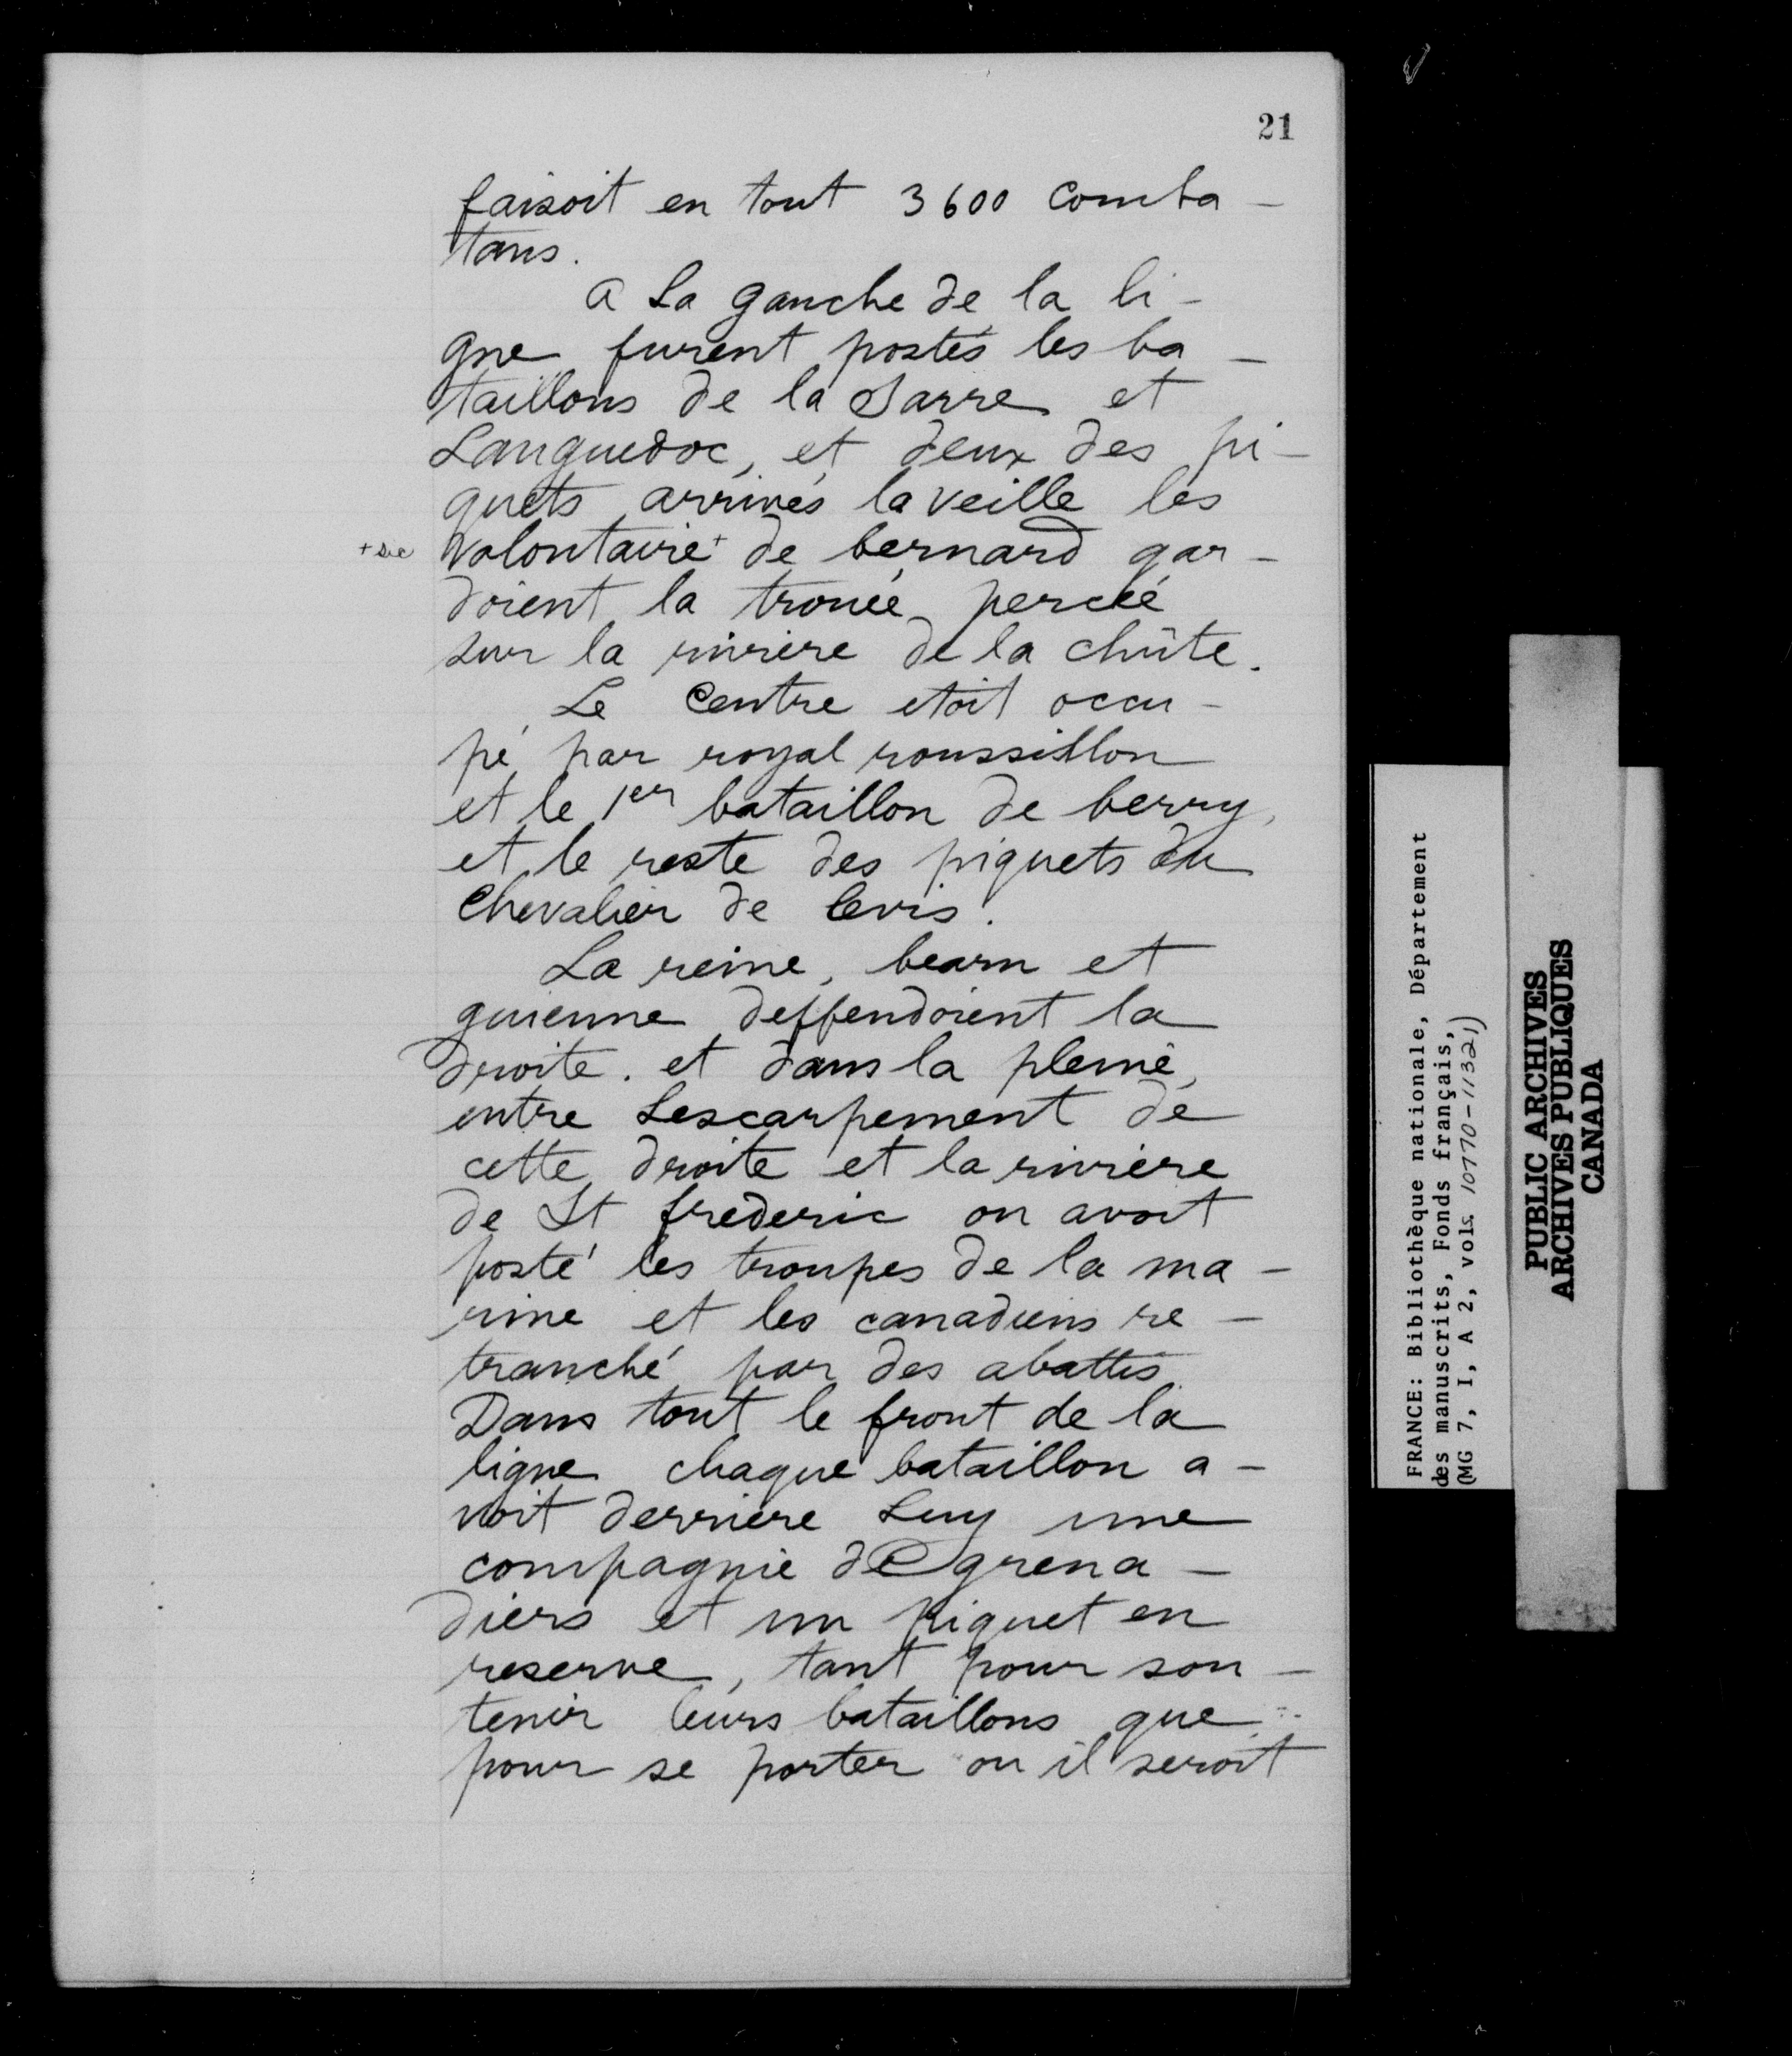 21
faisoit en tout 3600 comba-
tans.
a La gauche de la li-
gne furent postés les ba-
taillons de la Sarre et
Languedoc, et deux des pi-
quets arrivés la veille les
+ sic volontaire+ de bernard gar-
doient la trouée percéé
sur la riviere de la chûte.
Le Centre etoit occu-
pé par royal roussillon
et le 1er bataillon de berry,
et le reste des piquets du
Chevalier de levis.
La reine, bearn et
guienne deffendoient la
droite. et dans la pleine,
entre Lescarpement de
cette droite et la riviere
de St frederic on avoit
posté les troupes de la ma-
rine et les canadiens re-
tranché par des abattis.
Dans tout le front de la
ligne chaque bataillon a-
voit derriere Luy une
compagnie de grena-
diers et un piquet en
reserve, tant pour sou-
tenir leurs bataillons que
pour se porter ou il seroit
FRANCE: Bibliothèque nationale, Département
des manuscrits, Fonds français,
(MG 7, I, A 2, vols. 10770-11321)
PUBLIC ARCHIVES
ARCHIVES PUBLIQUES
CANADA